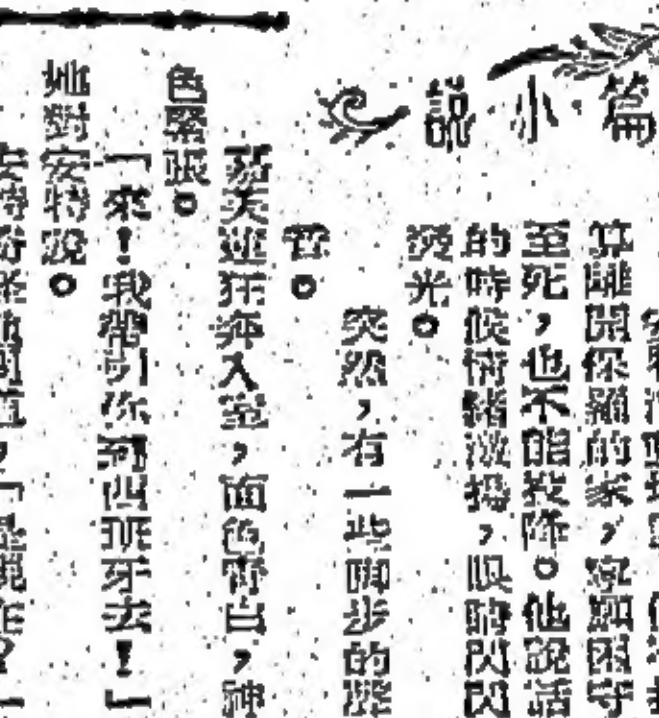 篇小說
算離開保羅的家，寧願困守
至死，也不能投降。他說話
的時候情緒激揚，眼睛閃閃
發光。
突然，有一些脚步的聲
音。
茄美蓮狂奔入室，面色靑白，神
色緊張。
「來！我帶引你到西班牙去！」
她對安特說。
安特奇怪地問道，「是現在？